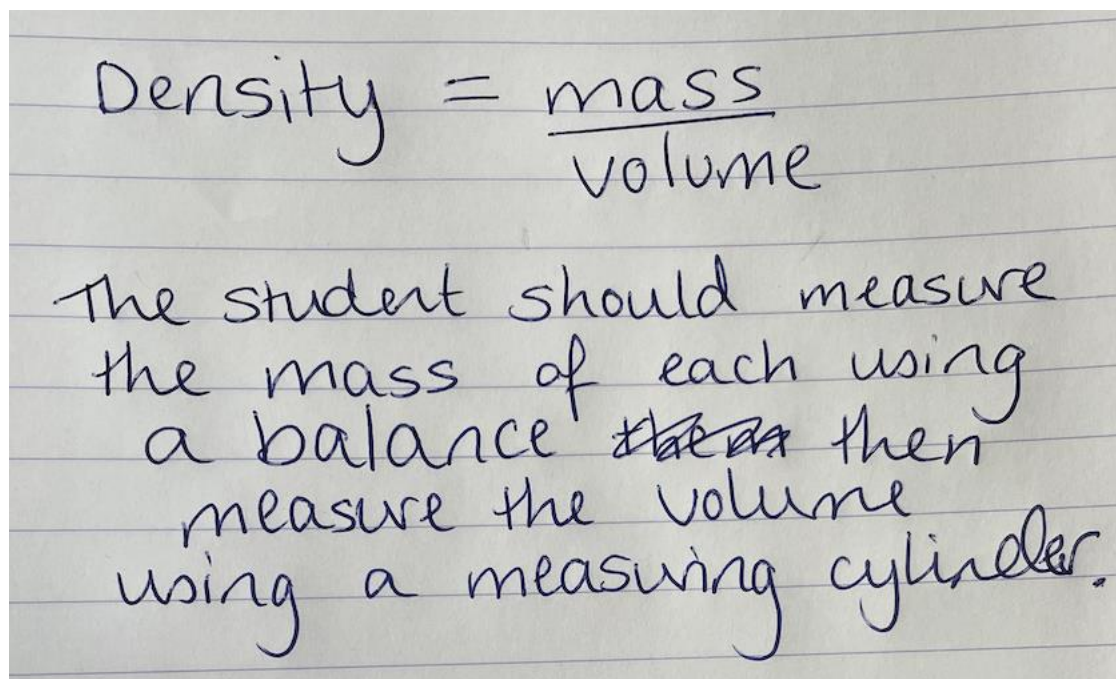 Density = mass
volume
The student should measure
the mass of each using
a balance then
measure the volume
using a measuring cylinder.